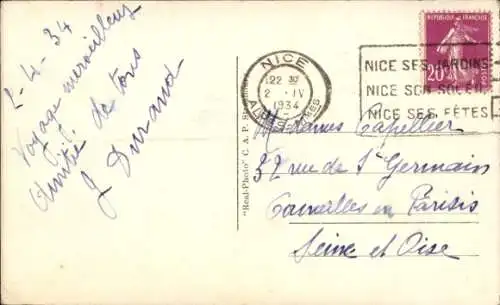 2-4-34
Voyage merveilleux
Amitié de tous
J Durand
NICE
22 30
2 · IV
1934
ALPES-MARITIMES
REPUBLIQUE FRANÇAISE
20c
NICE SES JARDINS
NICE SON SOLEIL
NICE SES FÊTES
"Real-Photo" C. A. P.
Mesdames Capellier
32 rue de St Germain
Cormeilles en Parisis
Seine et Oise